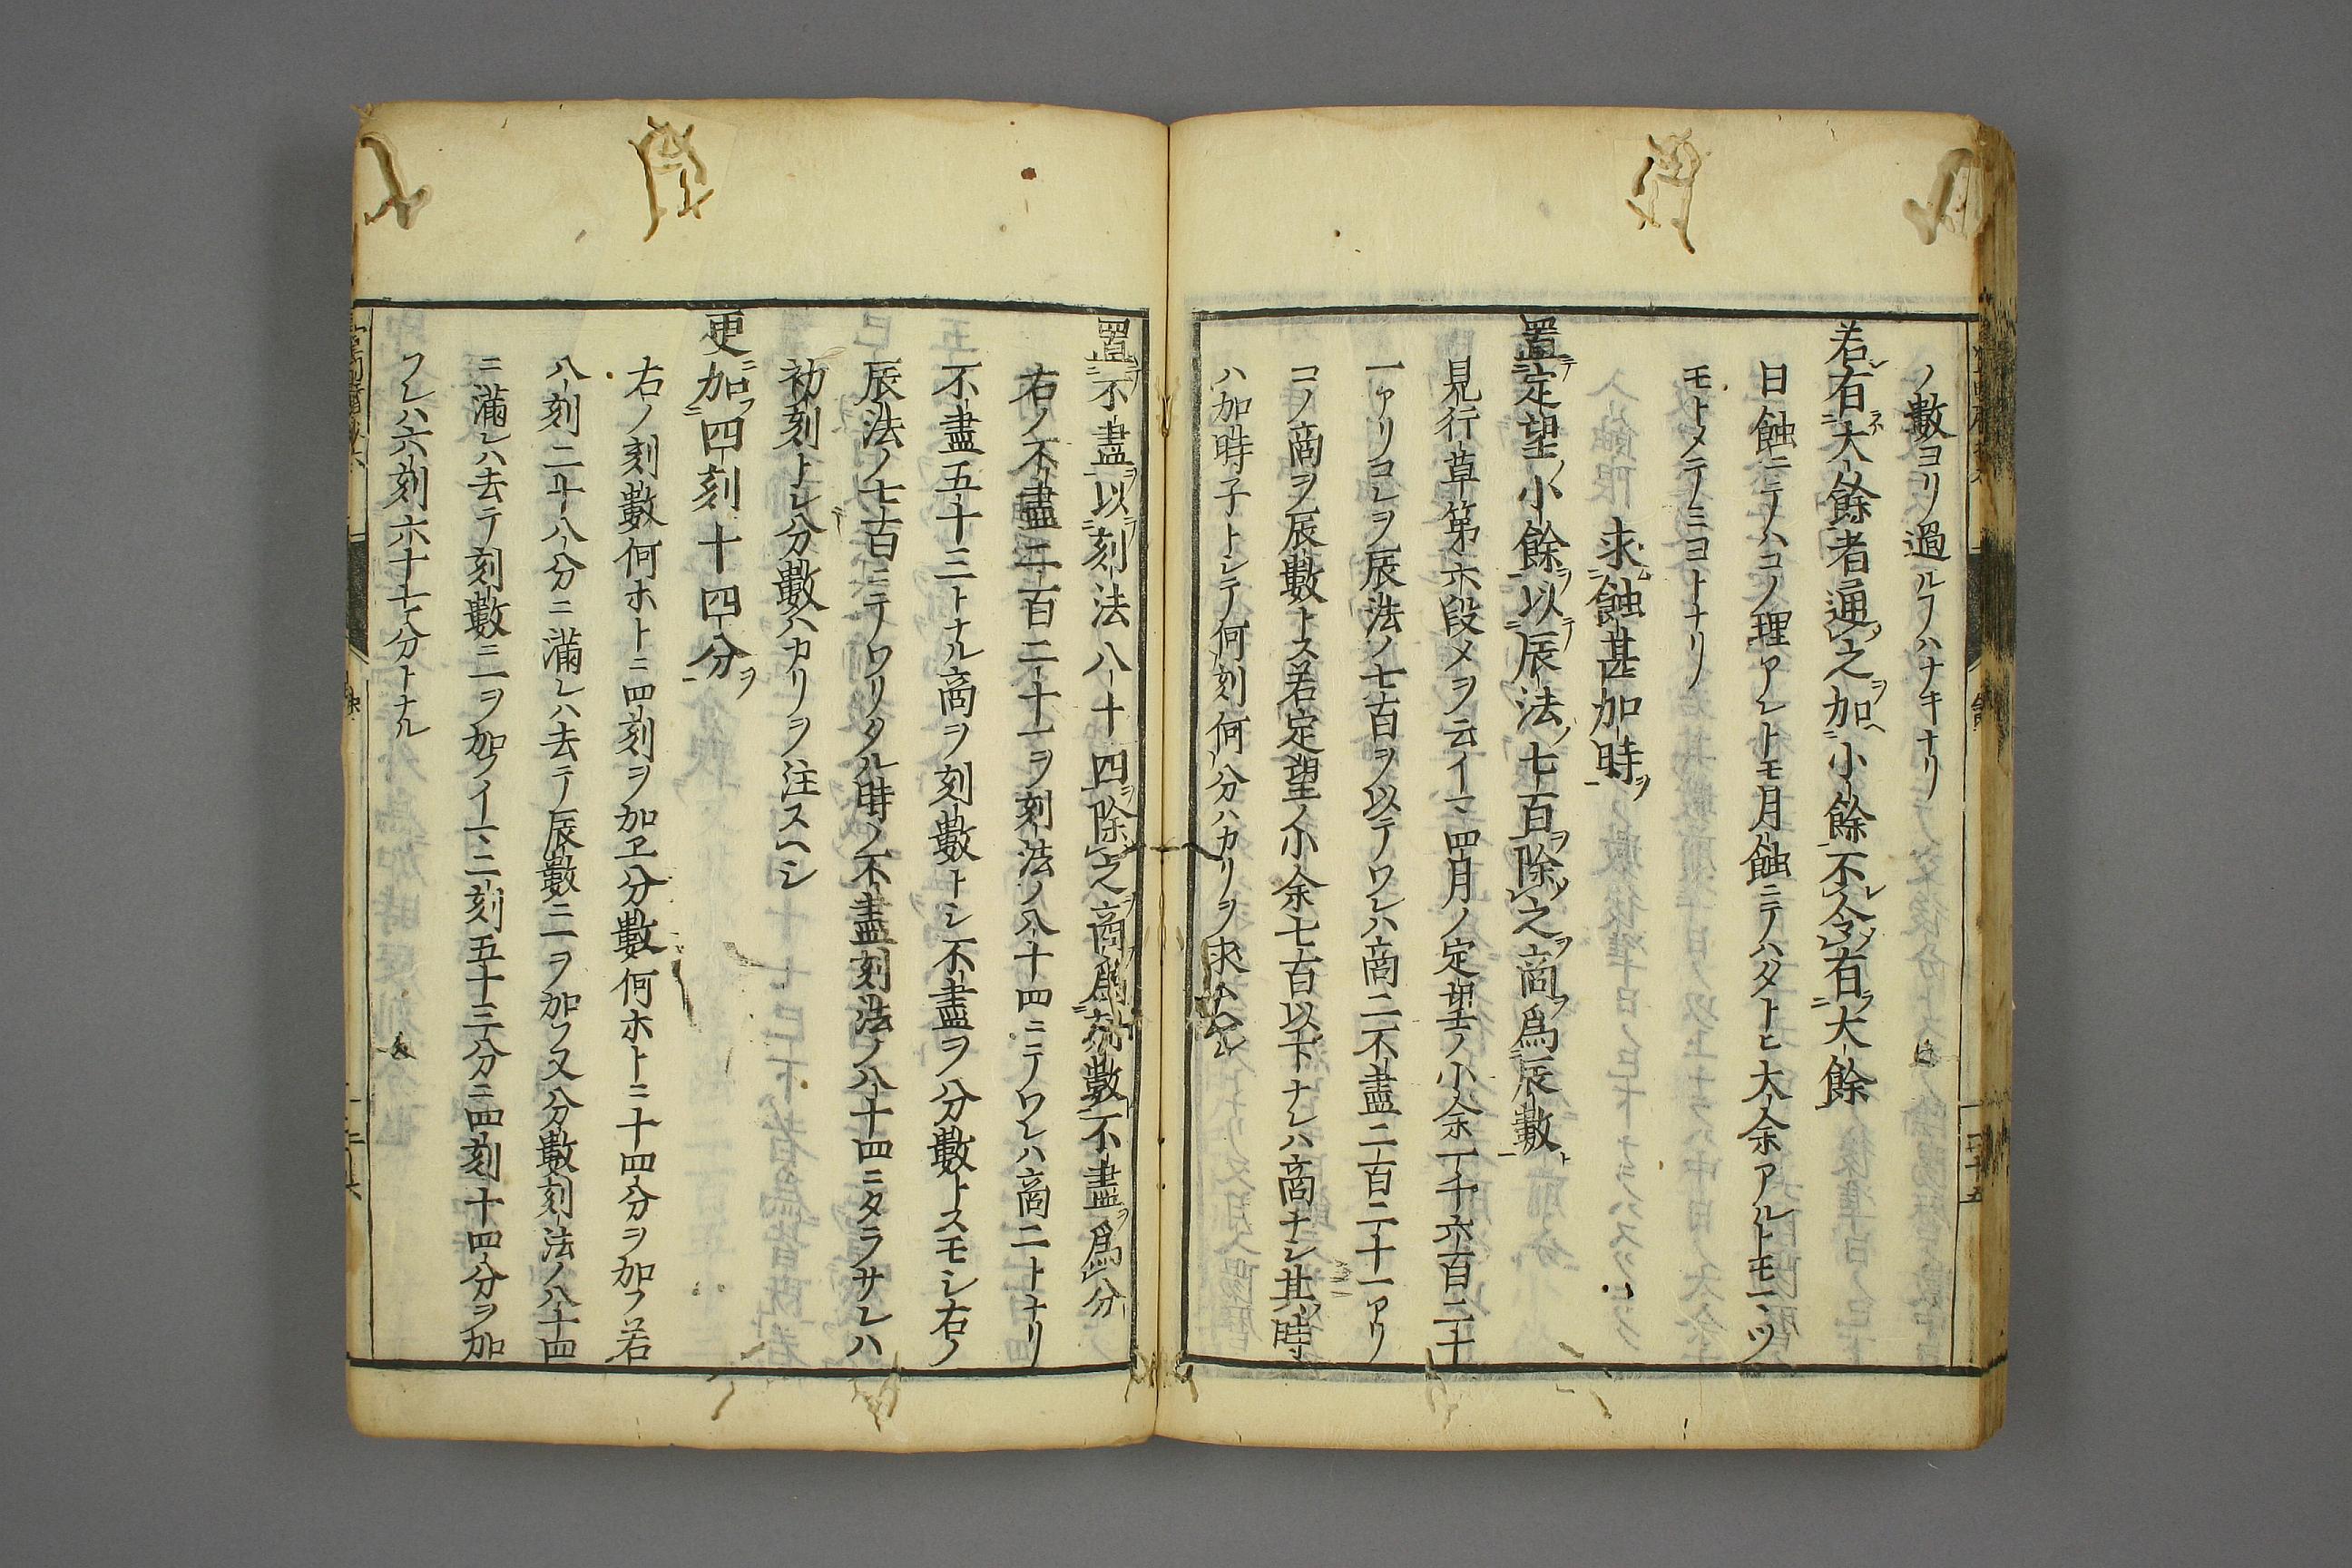 ノ數ヨリ過ルヿハナキナリ
若有大餘者通之加小餘不令有大餘
日蝕ニテハコノ理アレトモ月蝕ニテハタトヒ大余アルトモ一ツ
モトメテノミヨトナリ
求蝕甚加時
置定望小餘以辰法七百除之商爲辰數
見行草第六段メヲ云イマ四月ノ定望ノ小余一千六百二十
一アリコレヲ辰法ノ七百ヲ以テワレハ商二不盡二百二十一アリ
コノ商ヲ辰數トス若定望ノ小余七百以下ナレハ商ナシ其時
ハ加時子トシテ何刻何分ハカリヲ求ムヘシ
置不盡以刻法八十四除之商爲刻數不盡爲分
右ノ不盡二百二十一ヲ刻法ノ八十四ニテワレハ商二トナリ
不盡五十三トナル商ヲ刻數トシ不盡ヲ分數トスモシ右ノ
辰法ノ七百ニテワリタル時ノ不盡刻法ノ八十四ニタラサレハ
初刻トシ分數ハカリヲ注スヘシ
更加四刻十四分
右ノ刻數何ホトニ四刻ヲ加ヱ分數何ホトニ十四分ヲ加フ若
八刻二十八分ニ滿レハ去テ辰數ニ一ヲ加フ又分數刻法ノ八十四
ニ滿レハ去テ刻數ニ一ヲ加フイマ二刻五十三分ニ四刻十四分ヲ加
フレハ六刻六十七分トナル